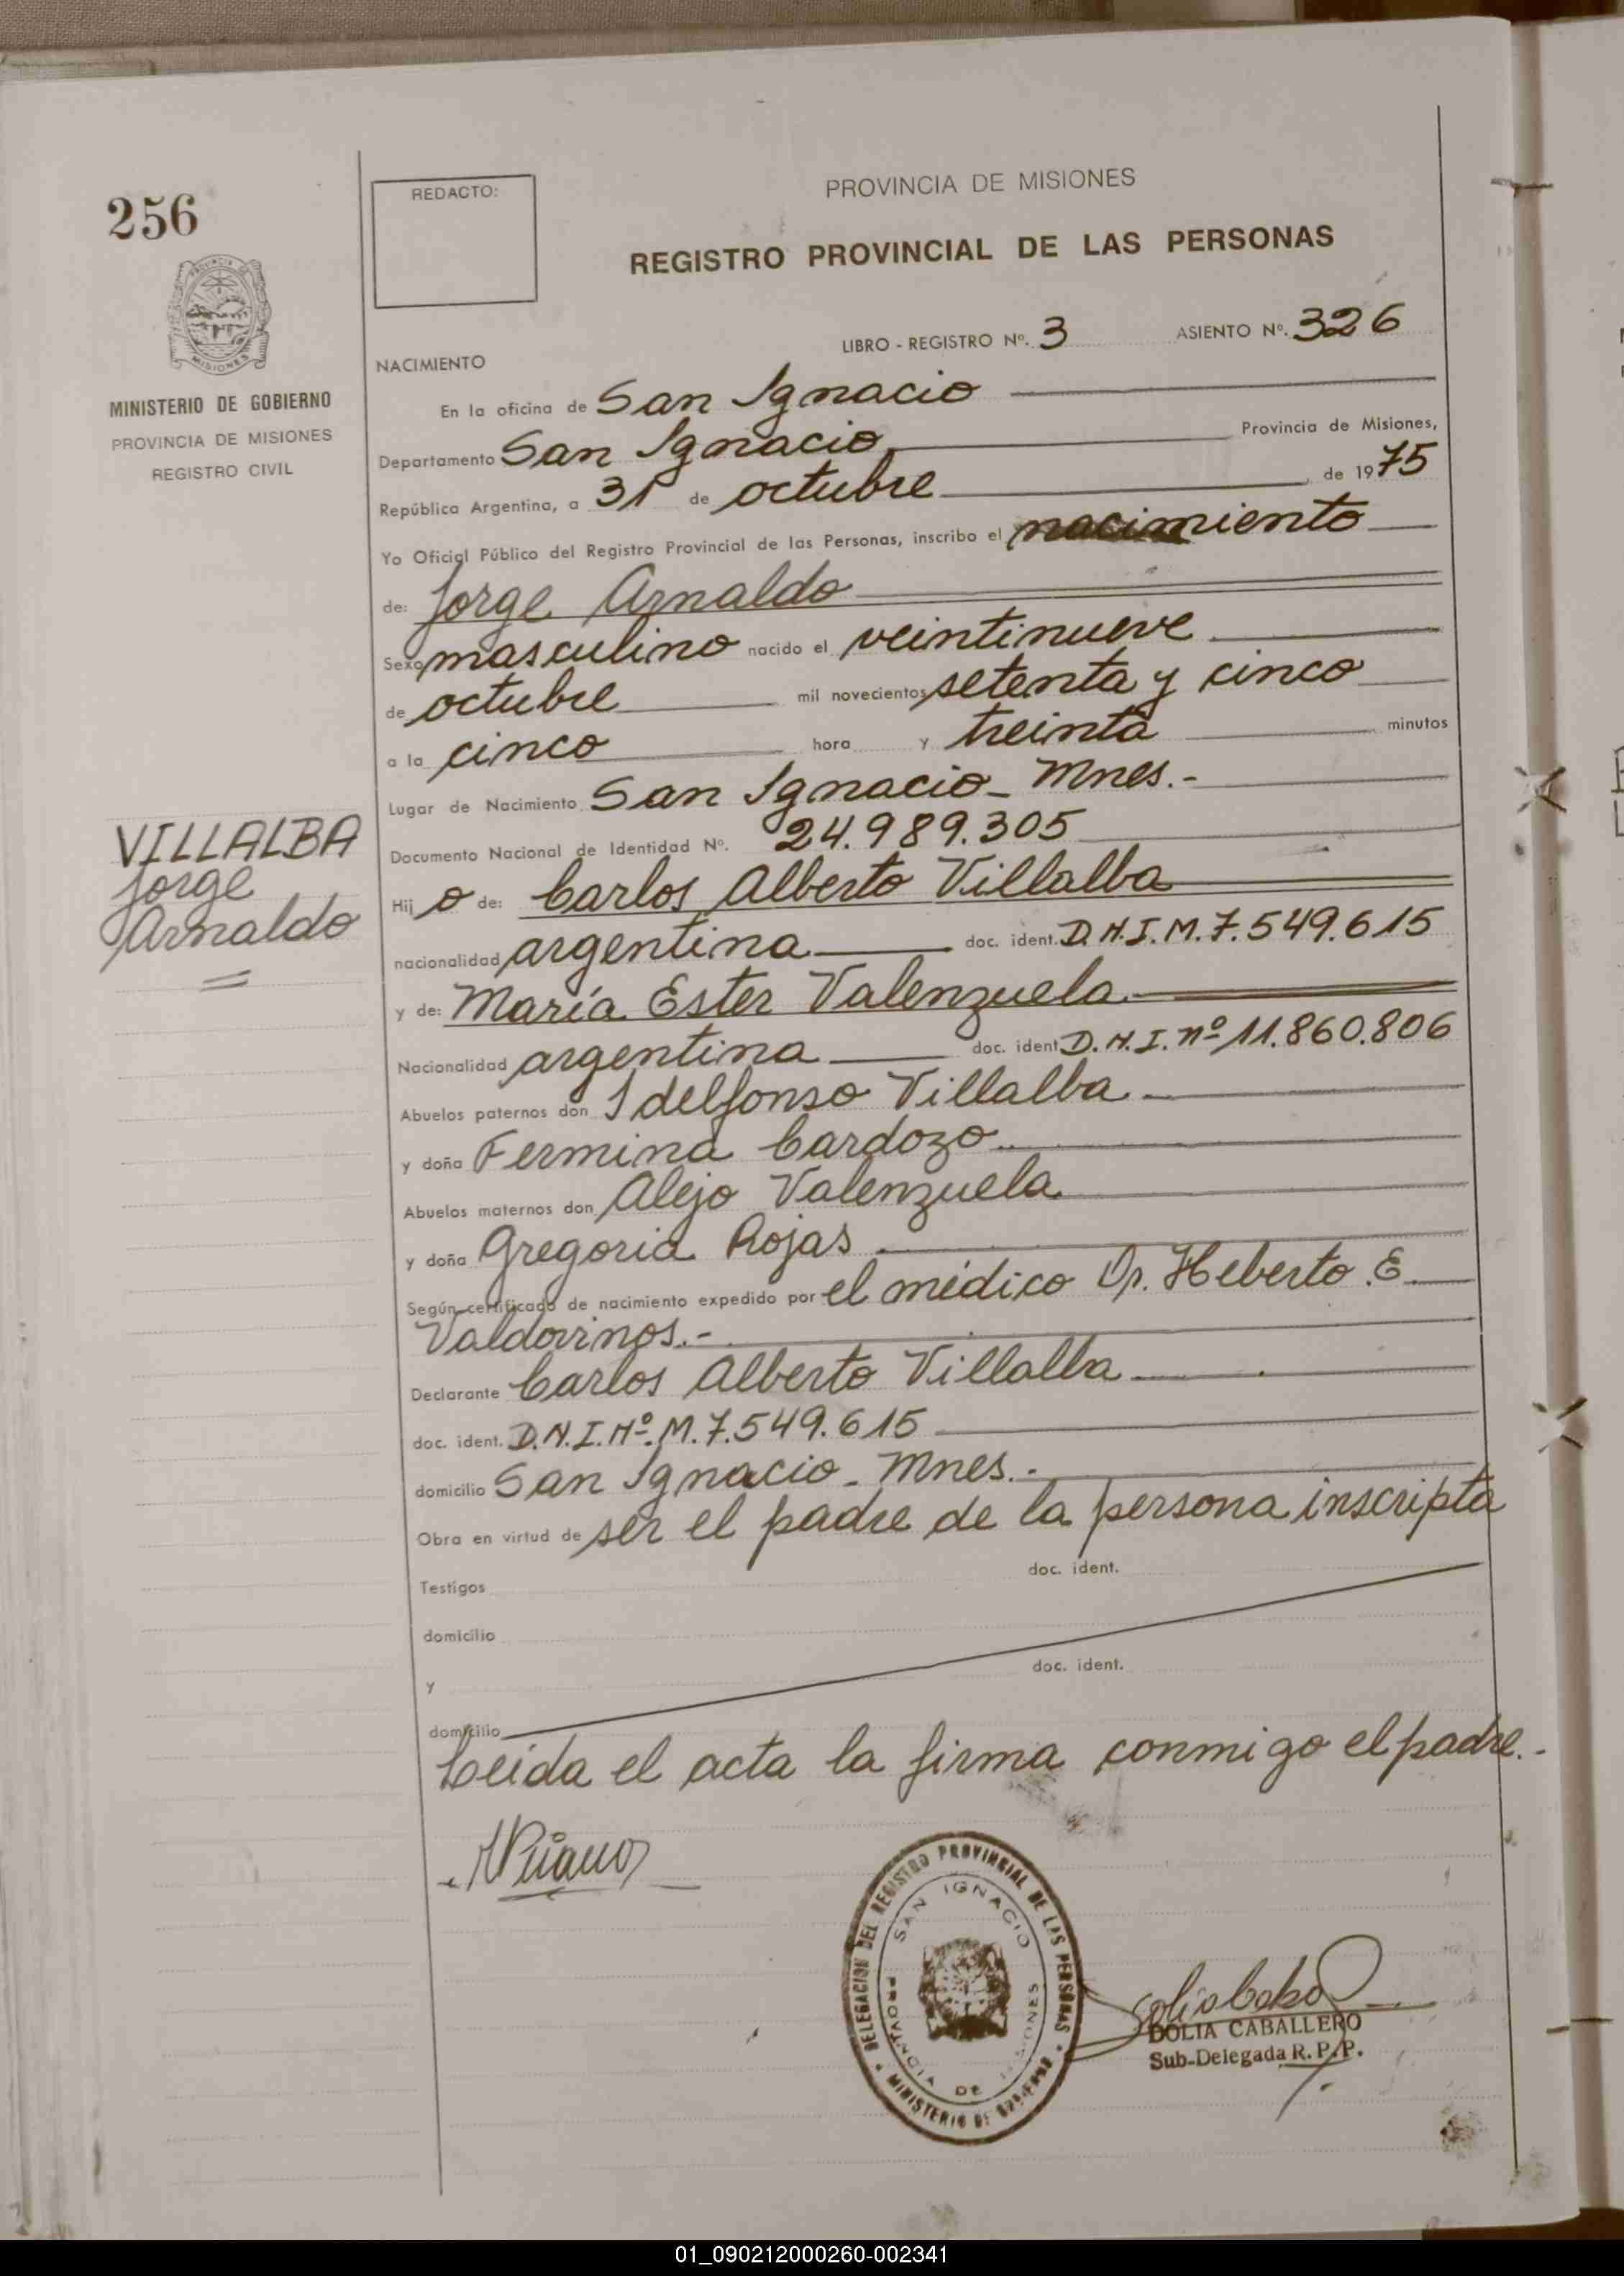 256
REDACTO:
PROVINCIA DE MISIONES
REGISTRO PROVINCIAL DE LAS PERSONAS
PROVINCIA DE
MISIONES
MINISTERIO DE GOBIERNO
PROVINCIA DE MISIONES
REGISTRO CIVIL
LIBRO - REGISTRO Nº. 3 ASIENTO Nº. 326
NACIMIENTO
En la oficina de San Ignacio
Departamento San Ignacio Provincia de Misiones,
República Argentina, a 31 de octubre de 1975
Yo Oficial Público del Registro Provincial de las Personas, inscribo el nacimiento
de: Jorge Arnaldo
Sexo masculino nacido el veintinueve
de octubre mil novecientos setenta y cinco
a la cinco hora y treinta minutos
Lugar de Nacimiento San Ignacio - Mnes.-
Documento Nacional de Identidad Nº. 24.989.305
VILLALBA
Jorge
Arnaldo
Hij o de: Carlos Alberto Villalba
nacionalidad argentina doc. ident. D.N.I.M.7.549.615
y de: María Ester Valenzuela
Nacionalidad argentina doc. ident D.N.I. nº 11.860.806
Abuelos paternos don Idelfonso Villalba
y doña Fermina Cardozo
Abuelos maternos don Alejo Valenzuela
y doña Gregoria Rojas
Según certificado de nacimiento expedido por el médico Dr. Heberto E.
Valdovinos.-
Declarante Carlos Alberto Villalba
doc. ident. D.N.I.Nº.M.7.549.615
domicilio San Ignacio - Mnes.-
Obra en virtud de ser el padre de la persona inscripta
Testigos doc. ident.
domicilio
y doc. ident.
domicilio
Leida el acta la firma conmigo el padre.-
DELEGACION DEL REGISTRO PROVINCIAL DE LAS PERSONAS
SAN IGNACIO
PROVINCIA DE MISIONES
MINISTERIO DE GOBIERNO
DOLIA CABALLERO
Sub-Delegada R. P. P.
01_090212000260-002341